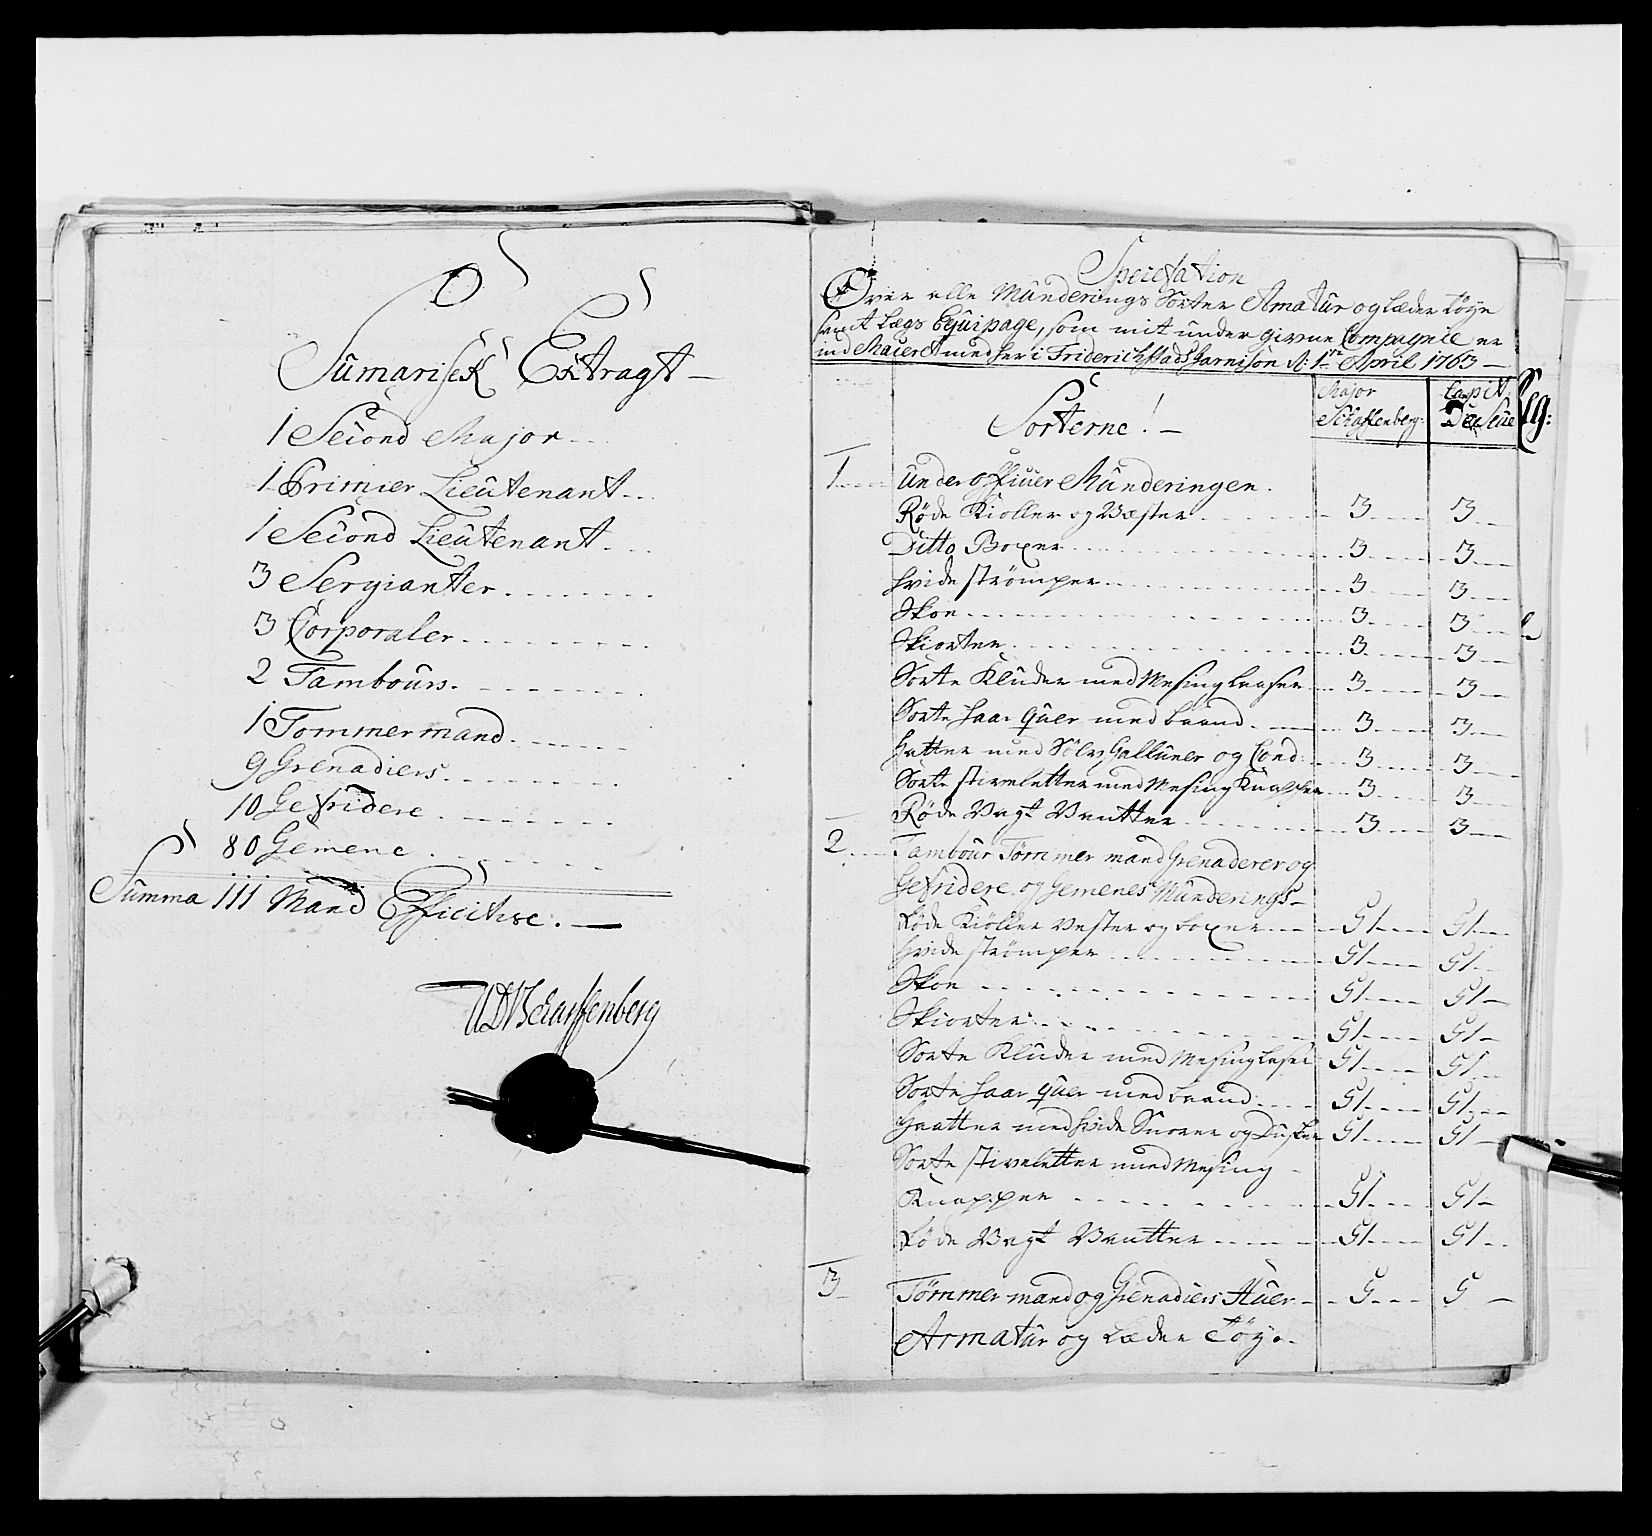 Sumarisck Extragt
1 Second Major
1 Primier Lieutenant
1 Second Lieutenant
3 Sergianter
3 Corporaler
2 Tambours
1 Tommermand
9 Grenadiers
10 Gefridere
80 Gemene
Summa 111 Mand Efficitive
Specification
Over alle Munderings Sorter Amatur og Læder Tøye
samt Lægs Equipage, som mit under givne Compagnie er
ind Maueret med her i Friderichstads Garnison d: 1te April 1763
Sorterne! Major Scharffenberg Capit
1 Under officier Munderingen
Røde Kioller og Væster 3 3
Ditto Boxer 3 3
hvide strömper 3 3
Skoe 3 3
Skiorter 3 3
Sorte Kluder med Mesing Laaser 3 3
Sorte Haar quer med baand 3 3
Hatter med Sölv Galluner og Cond: 3 3
Sorte stivletter med Mesing Knapper 3 3
Røde Vagt Vantter 3 3
2 Tambour Tømmer mand Grenaderer og
Gefridere og Gemenes Munderings
Røde Kiöller Vester og boxer 51 51
Hvide strömper 51 51
Skoe 51 51
Skiorter 51 51
Sorte Kluder med Mesing Laser 51 51
Sorte Haar quer med baand 51 51
Haatter med hvide Snorer og Dusker 51 51
Sorte stivletter med Mesing
Knapper 51 51
Røde Vagt Vantter 51 51
3 Tømmer mand og Grenadiers Huer 5 5
Armatur og Læder Tøye